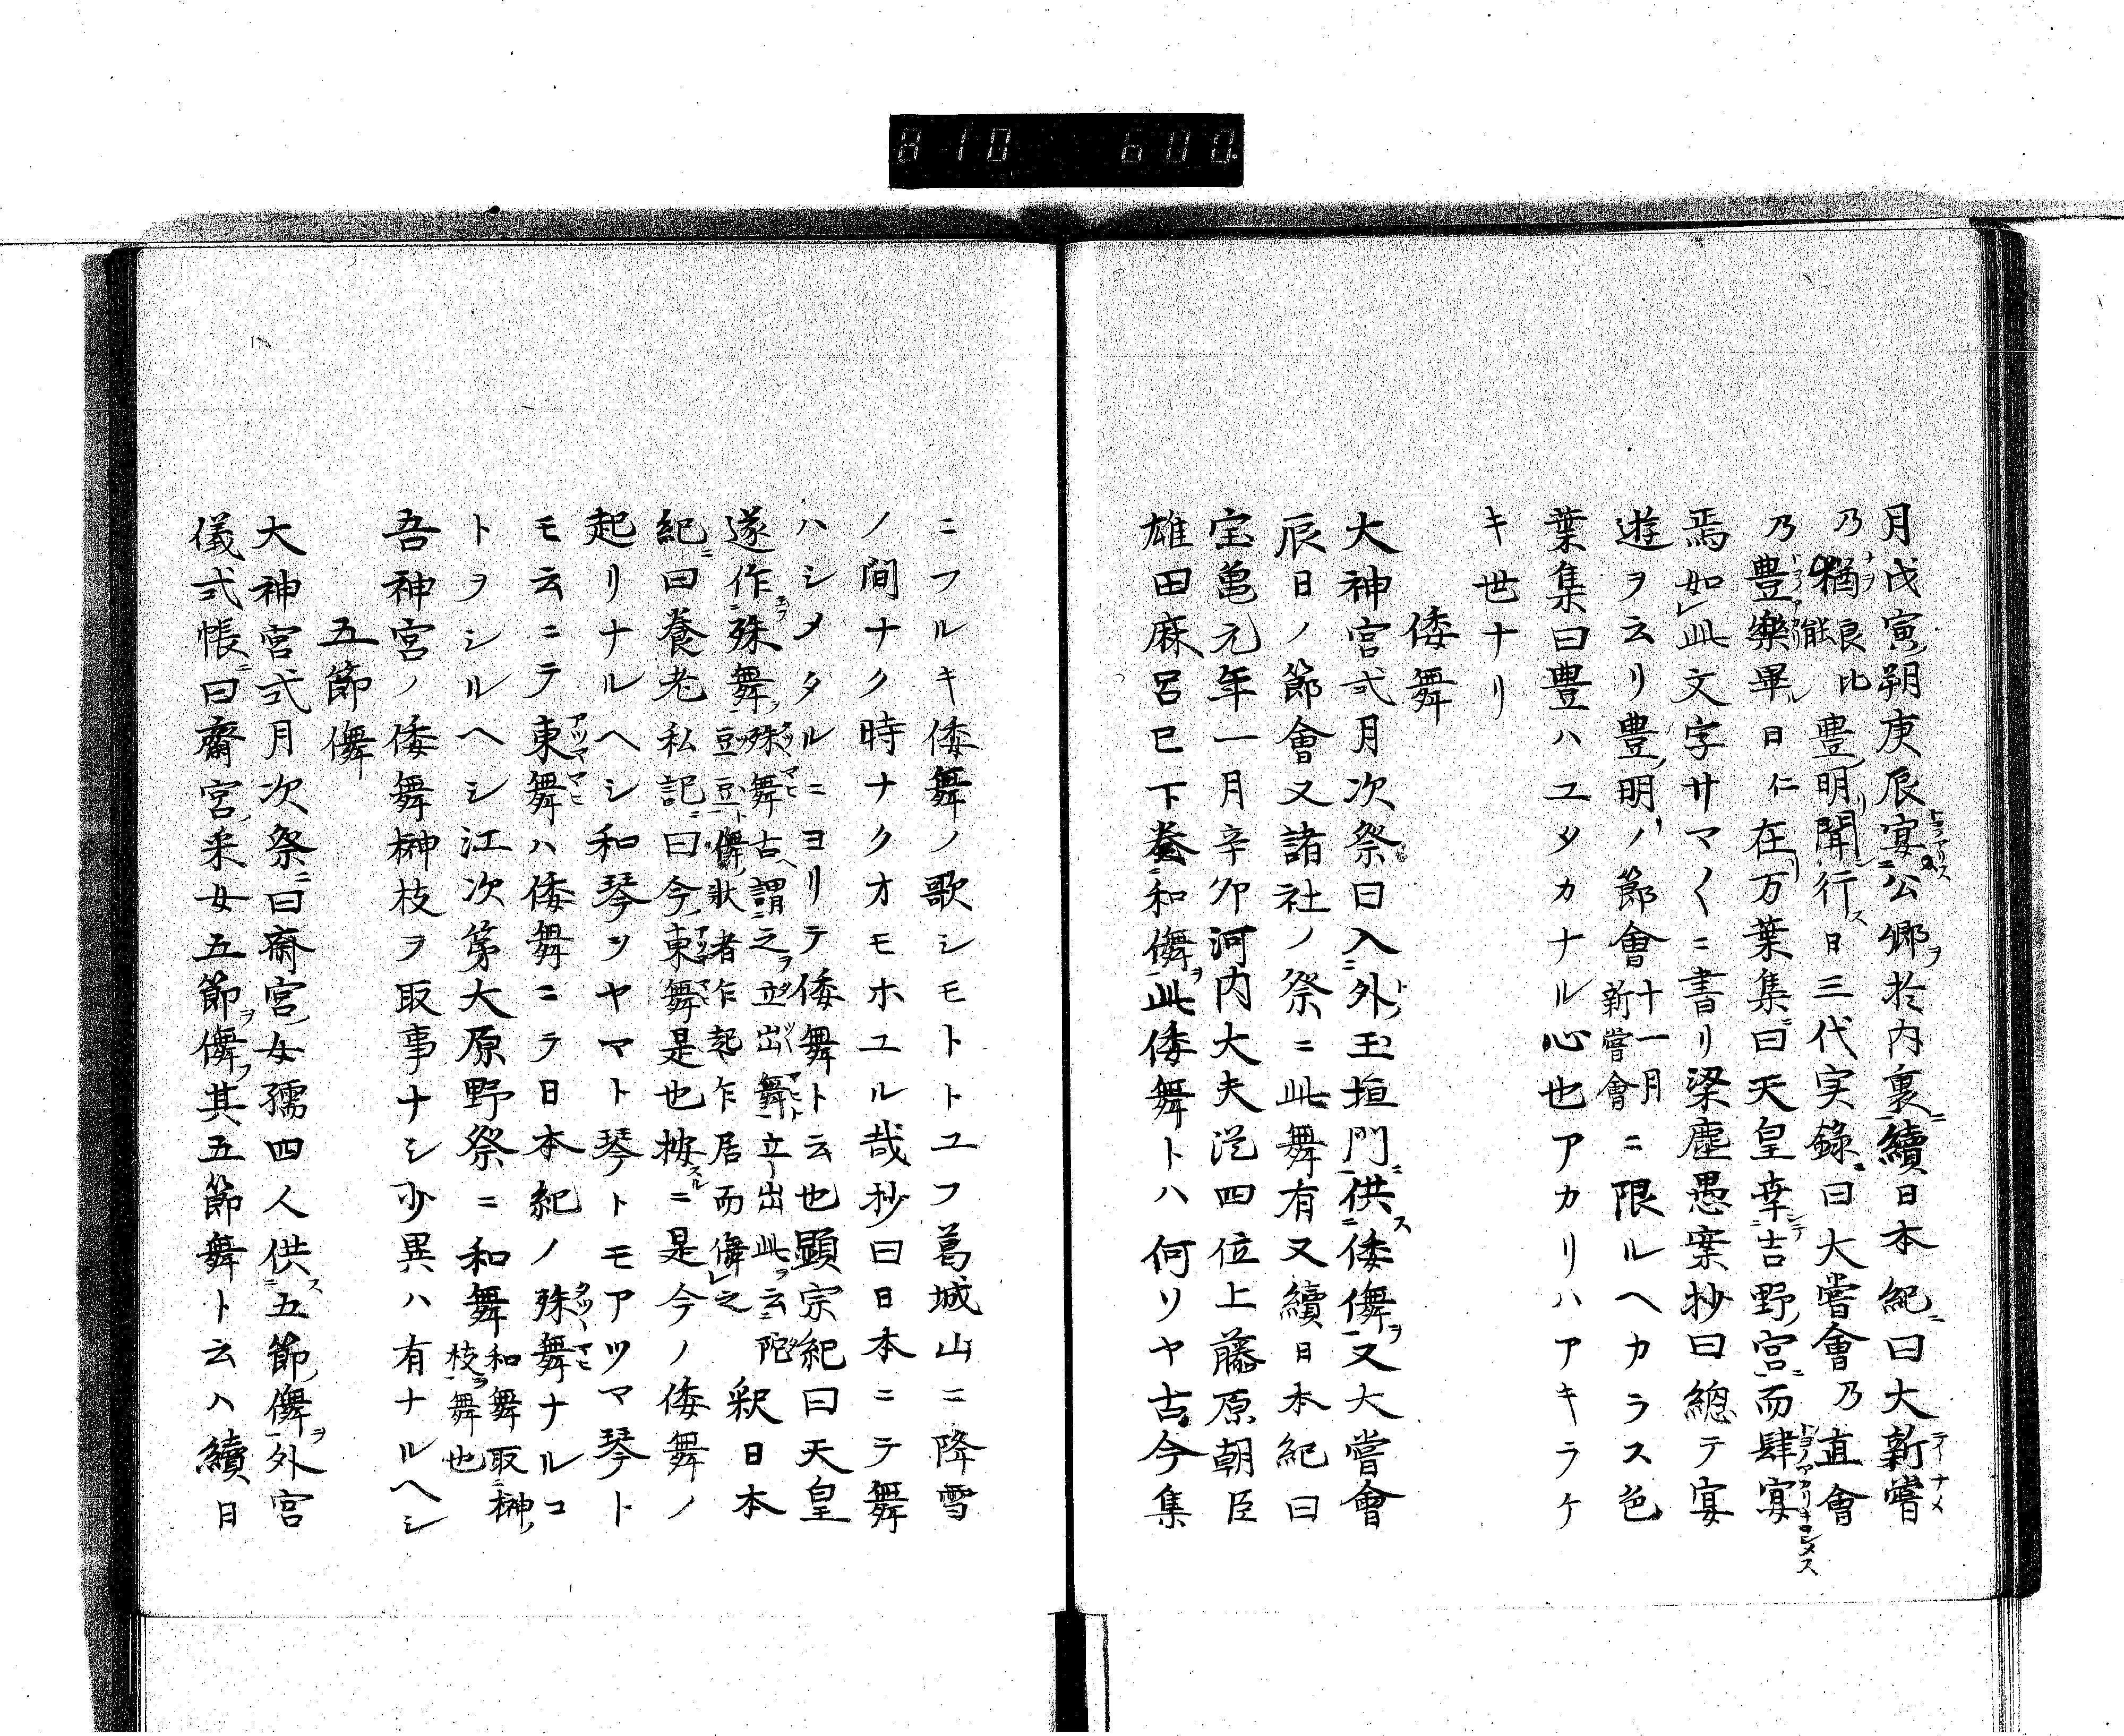 810 600.
月戊寅朔庚辰宴公卿於内裏續日本紀曰大新嘗
乃猶良比豊明聞行日三代実錄曰大嘗會乃直會
乃豊樂畢日仁在万葉集曰天皇幸吉野宮而肆宴
焉如此文字サマ〱ニ書リ梁塵愚案抄曰總テ宴
遊ヲ云リ豊明ノ節會十一月新嘗會ニ限ルヘカラス色
葉集曰豊ハユタカナル心也アカリハアキラケ
キ世ナリ
倭舞
大神宮式月次祭曰入外玉垣門供倭儛又大嘗會
辰日ノ節會又諸社ノ祭ニ此舞有又續日本紀曰
宝亀元年一月辛夘河内大夫從四位上藤原朝臣
雄田麻呂已下奏和儛此倭舞トハ何ソヤ古今集
ニフルキ倭舞ノ歌シモトトユフ葛城山ニ降雪
ノ間ナク時ナクオモホユル哉抄曰日本ニテ舞
ハシメタルニヨリテ倭舞ト云也顕宗紀曰天皇
遂作殊舞殊舞古謂之立出舞立出此云陀豆豆儛狀者乍起乍居而儛之釈日本
紀曰養老私記曰今東舞是也按ニ是今ノ倭舞ノ
起リナルヘシ和琴ヲヤマト琴トモアツマ琴ト
モ云ニテ東舞ハ倭舞ニテ日本紀ノ殊舞ナルコ
トヲシルヘシ江次第大原野祭ニ和舞和舞取榊枝舞也
吾神宮ノ倭舞榊枝ヲ取事ナシ少異ハ有ナルヘシ
五節儛
大神宮式月次祭曰斎宮女孺四人供五節儛外宮
儀式帳曰齋宮采女五節儛其五節舞ト云ハ續日